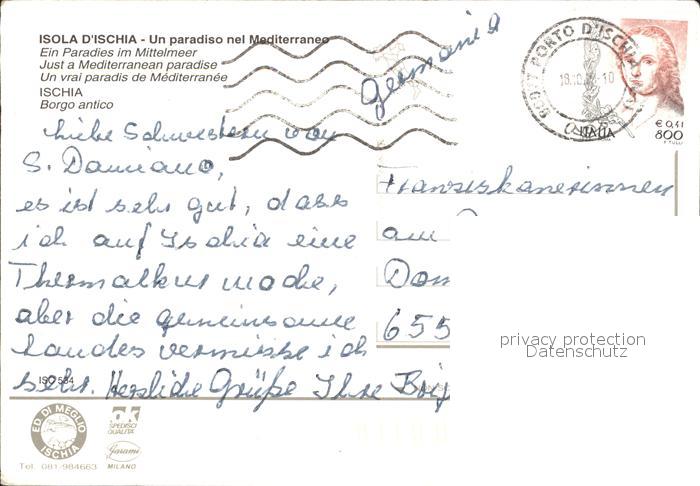 ISOLA D'ISCHIA - Un paradiso nel Mediterraneo
Ein Paradies im Mittelmeer
Just a Mediterranean paradise
Un vrai paradis de Méditerranée
ISCHIA
Borgo antico
germania
80077 PORTO D'ISCHIA (NA)
18.10. 10
ITALIA
€ 0,41
800
Liebe Schwestern von
S. Damiano,
es ist sehr gut, dass
ich auf Ischia eine
Thermalkur mache,
aber die gemeinsame
vermisse ich
sehr. Herzliche Grüße Ihre
Franziskanerinnen
am
Dom
655
privacy protection
Datenschutz
ISO 534
ED DI MEGLIO
ISCHIA
Tel. 081-984663
ok
SPEDISCI
QUALITA'
Garami
MILANO